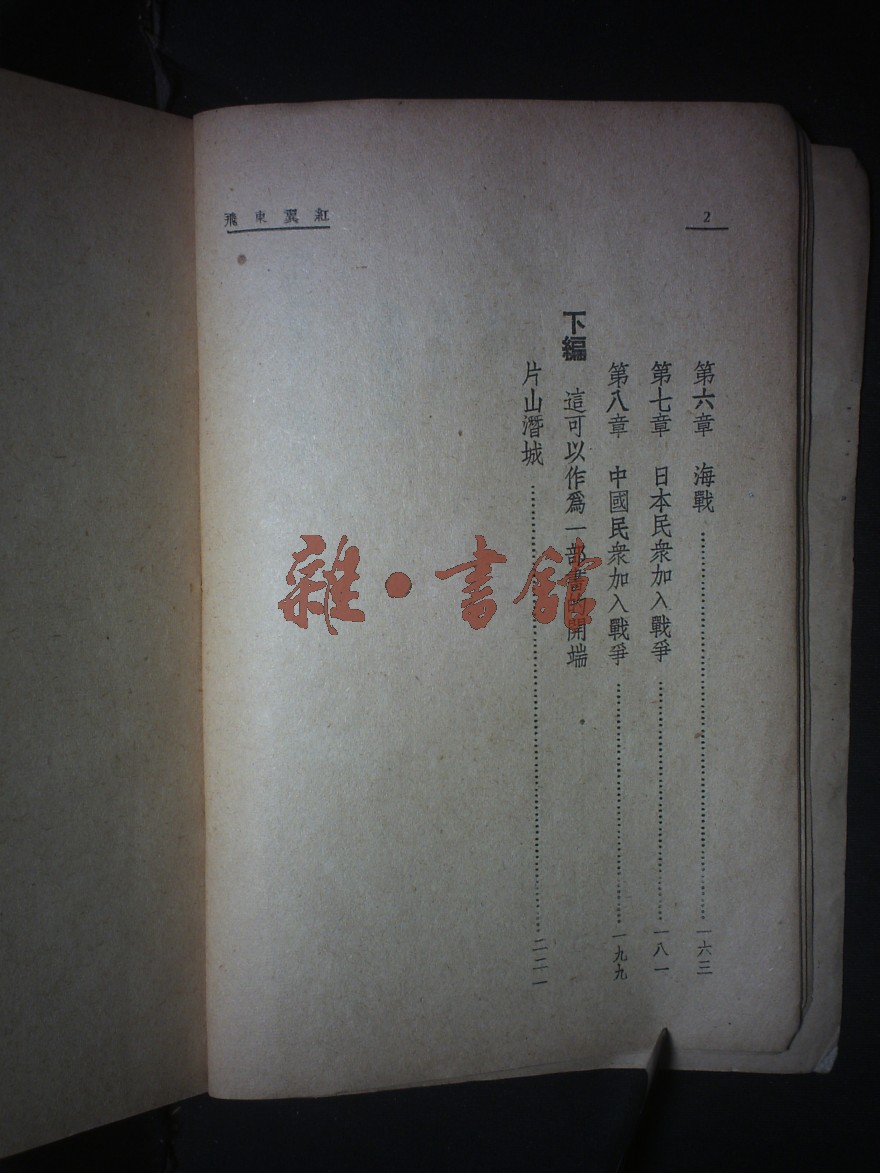 2
飛東翼紅
第六章 海戰………………一六三
第七章 日本民衆加入戰爭………………一八一
第八章 中國民衆加入戰爭………………一九九
下編 這可以作爲一部書的開端
片山潛城………………二二一
雜·書館